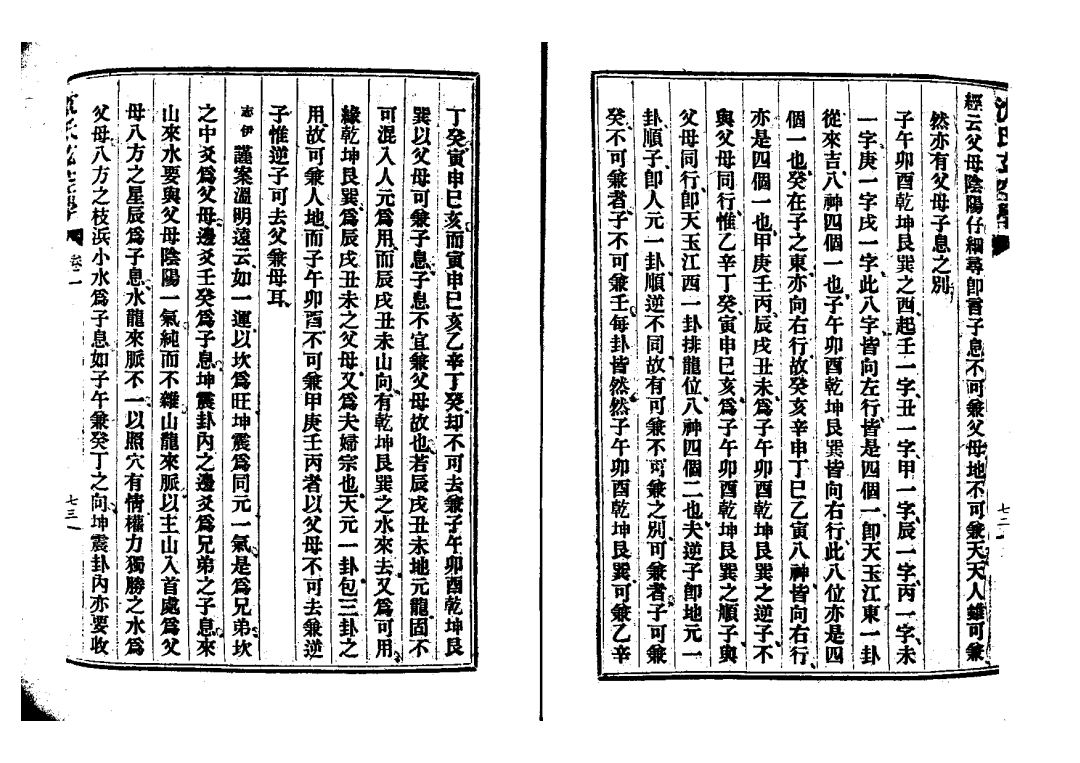 經云父母陰陽仔細尋卽言子息不可兼父母地不可兼天天人雖可兼
然亦有父母子息之別
子午卯酉乾坤艮巽之酉起壬一字丑一字甲一字辰一字丙一字未
一字庚一字戌一字此八字皆向左行皆是四個一卽天玉江東一卦
從來吉八神四個一也子午卯酉乾坤艮巽皆向右行此八位亦是四
個一也癸在子之東亦向右行故癸亥辛申丁巳乙寅八神皆向右行
亦是四個一也甲庚壬丙辰戌丑未爲子午卯酉乾坤艮巽之逆子不
與父母同行惟乙辛丁癸寅申巳亥爲子午卯酉乾坤艮巽之順子與
父母同行卽天玉江西一卦排龍位八神四個二也夫逆子卽地元一
卦順子卽人元一卦順逆不同故有可兼不可兼之別可兼者子可兼
癸不可兼者子不可兼壬每卦皆然然子午卯酉乾坤艮巽可兼乙辛
七二
丁癸寅申巳亥而寅申巳亥乙辛丁癸却不可去兼子午卯酉乾坤艮
巽以父母可兼子息子息不宜兼父母故也若辰戌丑未地元龍固不
可混入人元爲用而辰戌丑未山向有乾坤艮巽之水來去又爲可用
緣乾坤艮巽爲辰戌丑未之父母又爲夫婦宗也天元一卦包三卦之
用故可兼人地而子午卯酉不可兼甲庚壬丙者以父母不可去兼逆
子惟逆子可去父兼母耳
志伊 謹案溫明遠云如一運以坎爲旺坤震爲同元一氣是爲兄弟坎
之中爻爲父母邊爻壬癸爲子息坤震卦內之邊爻爲兄弟之子息來
山來水要與父母陰陽一氣純而不雜山龍來脈以主山入首處爲父
母八方之星辰爲子息水龍來脈不一以照穴有情權力獨勝之水爲
父母八方之枝浜小水爲子息如子午兼癸丁之向坤震卦內亦要收
卷二
七三